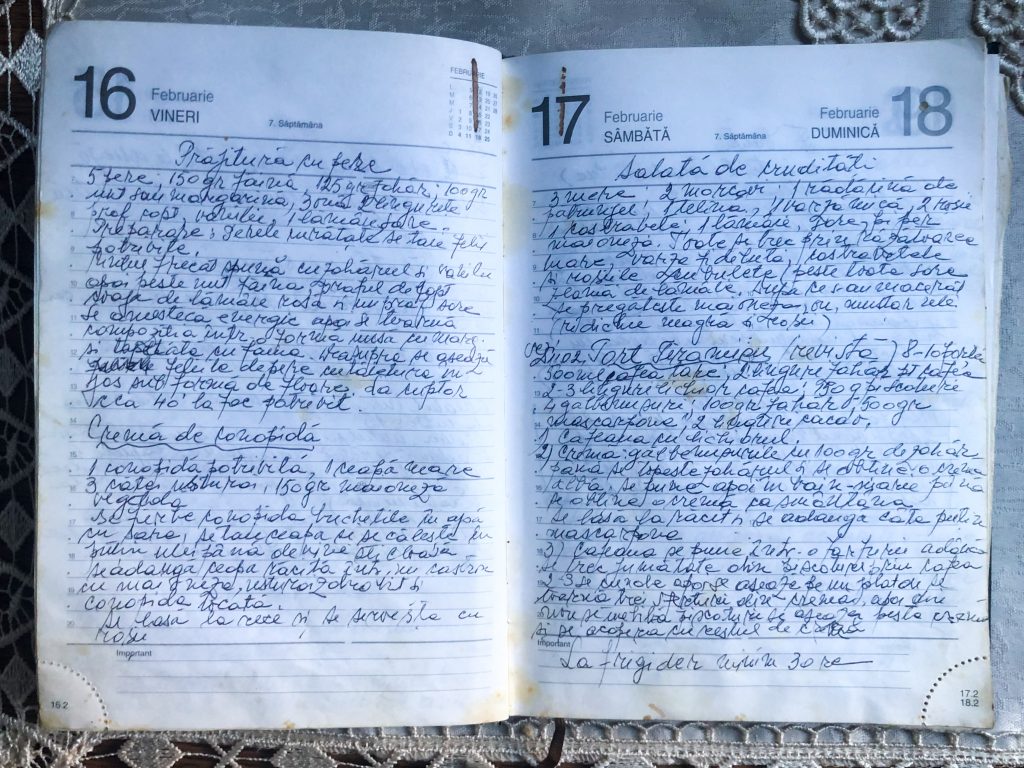 16
Februarie
VINERI
7. Săptămâna
FEBRUARIE
Prăjitură cu pere
5 pere, 150 gr făină, 125 gr zahăr, 100 gr
unt sau margarină, 3 ouă, 2 lingurite
praf copt, vaniliu, 1 lămâie, sare.
Preparare: Perele curatate se taie felii
potrivite.
Untul frecat spumă cu zahărul și vaniliu
apoi peste unt faina praful de copt
coaja de lămâie rasă și un praf sare
se amesteca energic apoi se toarnă
compozitia într-o forma unsa cu marg.
si cu faina. Deasupra se așează
felii de pere cu in
jos sub forma de floare, da cuptor
cca 40' la foc potrivit.
Cremă de conopidă
1 conopidă potrivită, 1 ceapă mare
3 căței usturoi, 150 gr maioneză
vegeta
Se fierbe conopida buchetile în apă
cu sare, se taie ceapa se se călește în
putin ulei până devine sticloasă
se adauga ceapa racită într-un castron
cu maioneza, usturoi zdrobit și
conopida tocată.
Se lasa la rece și se servește cu
roșii
Important
16.2
17
Februarie
SÂMBĂTĂ
7. Săptămâna
Februarie
DUMINICĂ
18
Salată de crudităti
3 mere, 2 morcovi, 1 rădăcină de
patrunjel, 1 telina, 1 varză mică, 2 roșii
1 castravete, 1 lămâie, sare și per
maioneză. Toate se trec prin răzatoarea
mare, varza fidelută, castravetele
si roșiile cubulete, peste toata sare
zeama de lămâie. După ce s-au macerat
se pregăteste maioneza, ou, mustar, ulei
(ridichie neagra si roșii)
Tort Tiramisu (revistă) 8-10 portii
500 ml cafea tare, 2 linguri zahar pt cafea
2-3 linguri lichior cafea, 350 gr piscoturi
4 galbenusuri, 100 gr zahăr, 500 gr
mascarpone, 2 linguri cacao.
1. Cafeaua cu lichiorul.
2) Crema: gălbenușurile cu 100 gr de zahăr
pana se topeste zahărul și se obtine o crema
alba, se pune apoi in bain-marie până
se obtine o crema ca smântâna
Se lasa la racit și se adauga câte putin
mascarpone
3) Cafeaua se pune într-o farfurie adâncă
se trec jumătate din piscoturi prin cafea
2-3 secunde apoi se aseaza pe un platou se
toarnă trei sferturi din crema, apoi din
nou se piscoturi se așează peste crema
si se acopera cu restul de cremă
Important
La frigider minim 3 ore
17.2
18.2